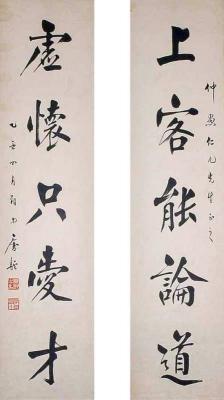 上客能論道
仲 仁兄先生正之
虛懷只愛才
乙亥四月